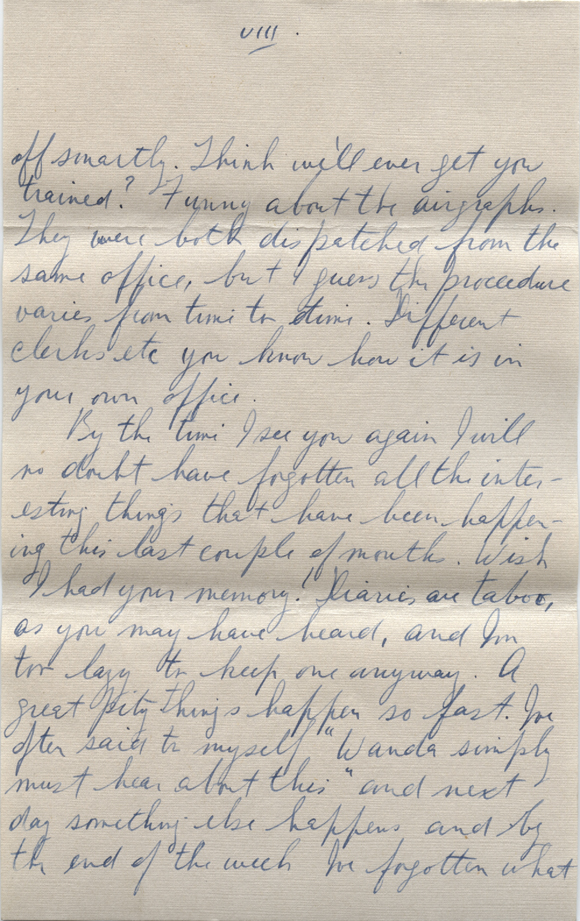 VIII.
off smartly. Think we'll ever get you
trained? Funny about the airgraphs.
They were both dispatched from the
same office, but I guess the procedure
varies from time to time. Different
clerks etc you know how it is in
your own office.
By the time I see you again I will
no doubt have forgotten all the inter-
esting things that have been happen-
ing this last couple of months. Wish
I had your memory! Diaries are taboo,
as you may have heard, and I'm
too lazy to keep one anyway. A
great pity things happen so fast. I've
often said to myself "Wanda simply
must hear about this" and next
day something else happens and by
the end of the week I've forgotten what